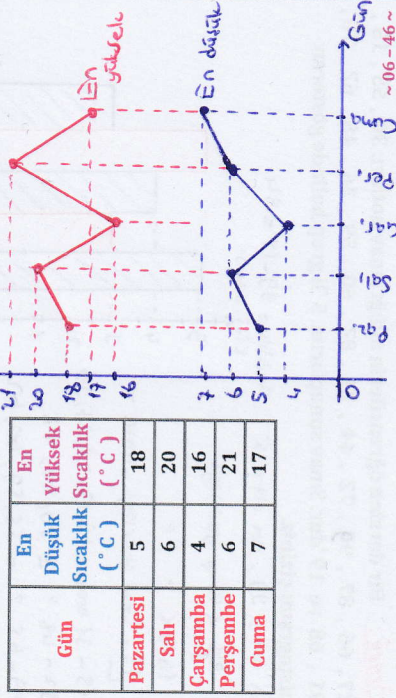 Gün
En Düşük Sıcaklık ( °C )
En Yüksek Sıcaklık ( °C )
Pazartesi 5 18
Salı 6 20
Çarşamba 4 16
Perşembe 6 21
Cuma 7 17
21
20
18
17
16
7
6
5
4
0
Paz.
Salı
Çar.
Per.
Cuma
Gün
En yüksek
En düşük
~06-46~